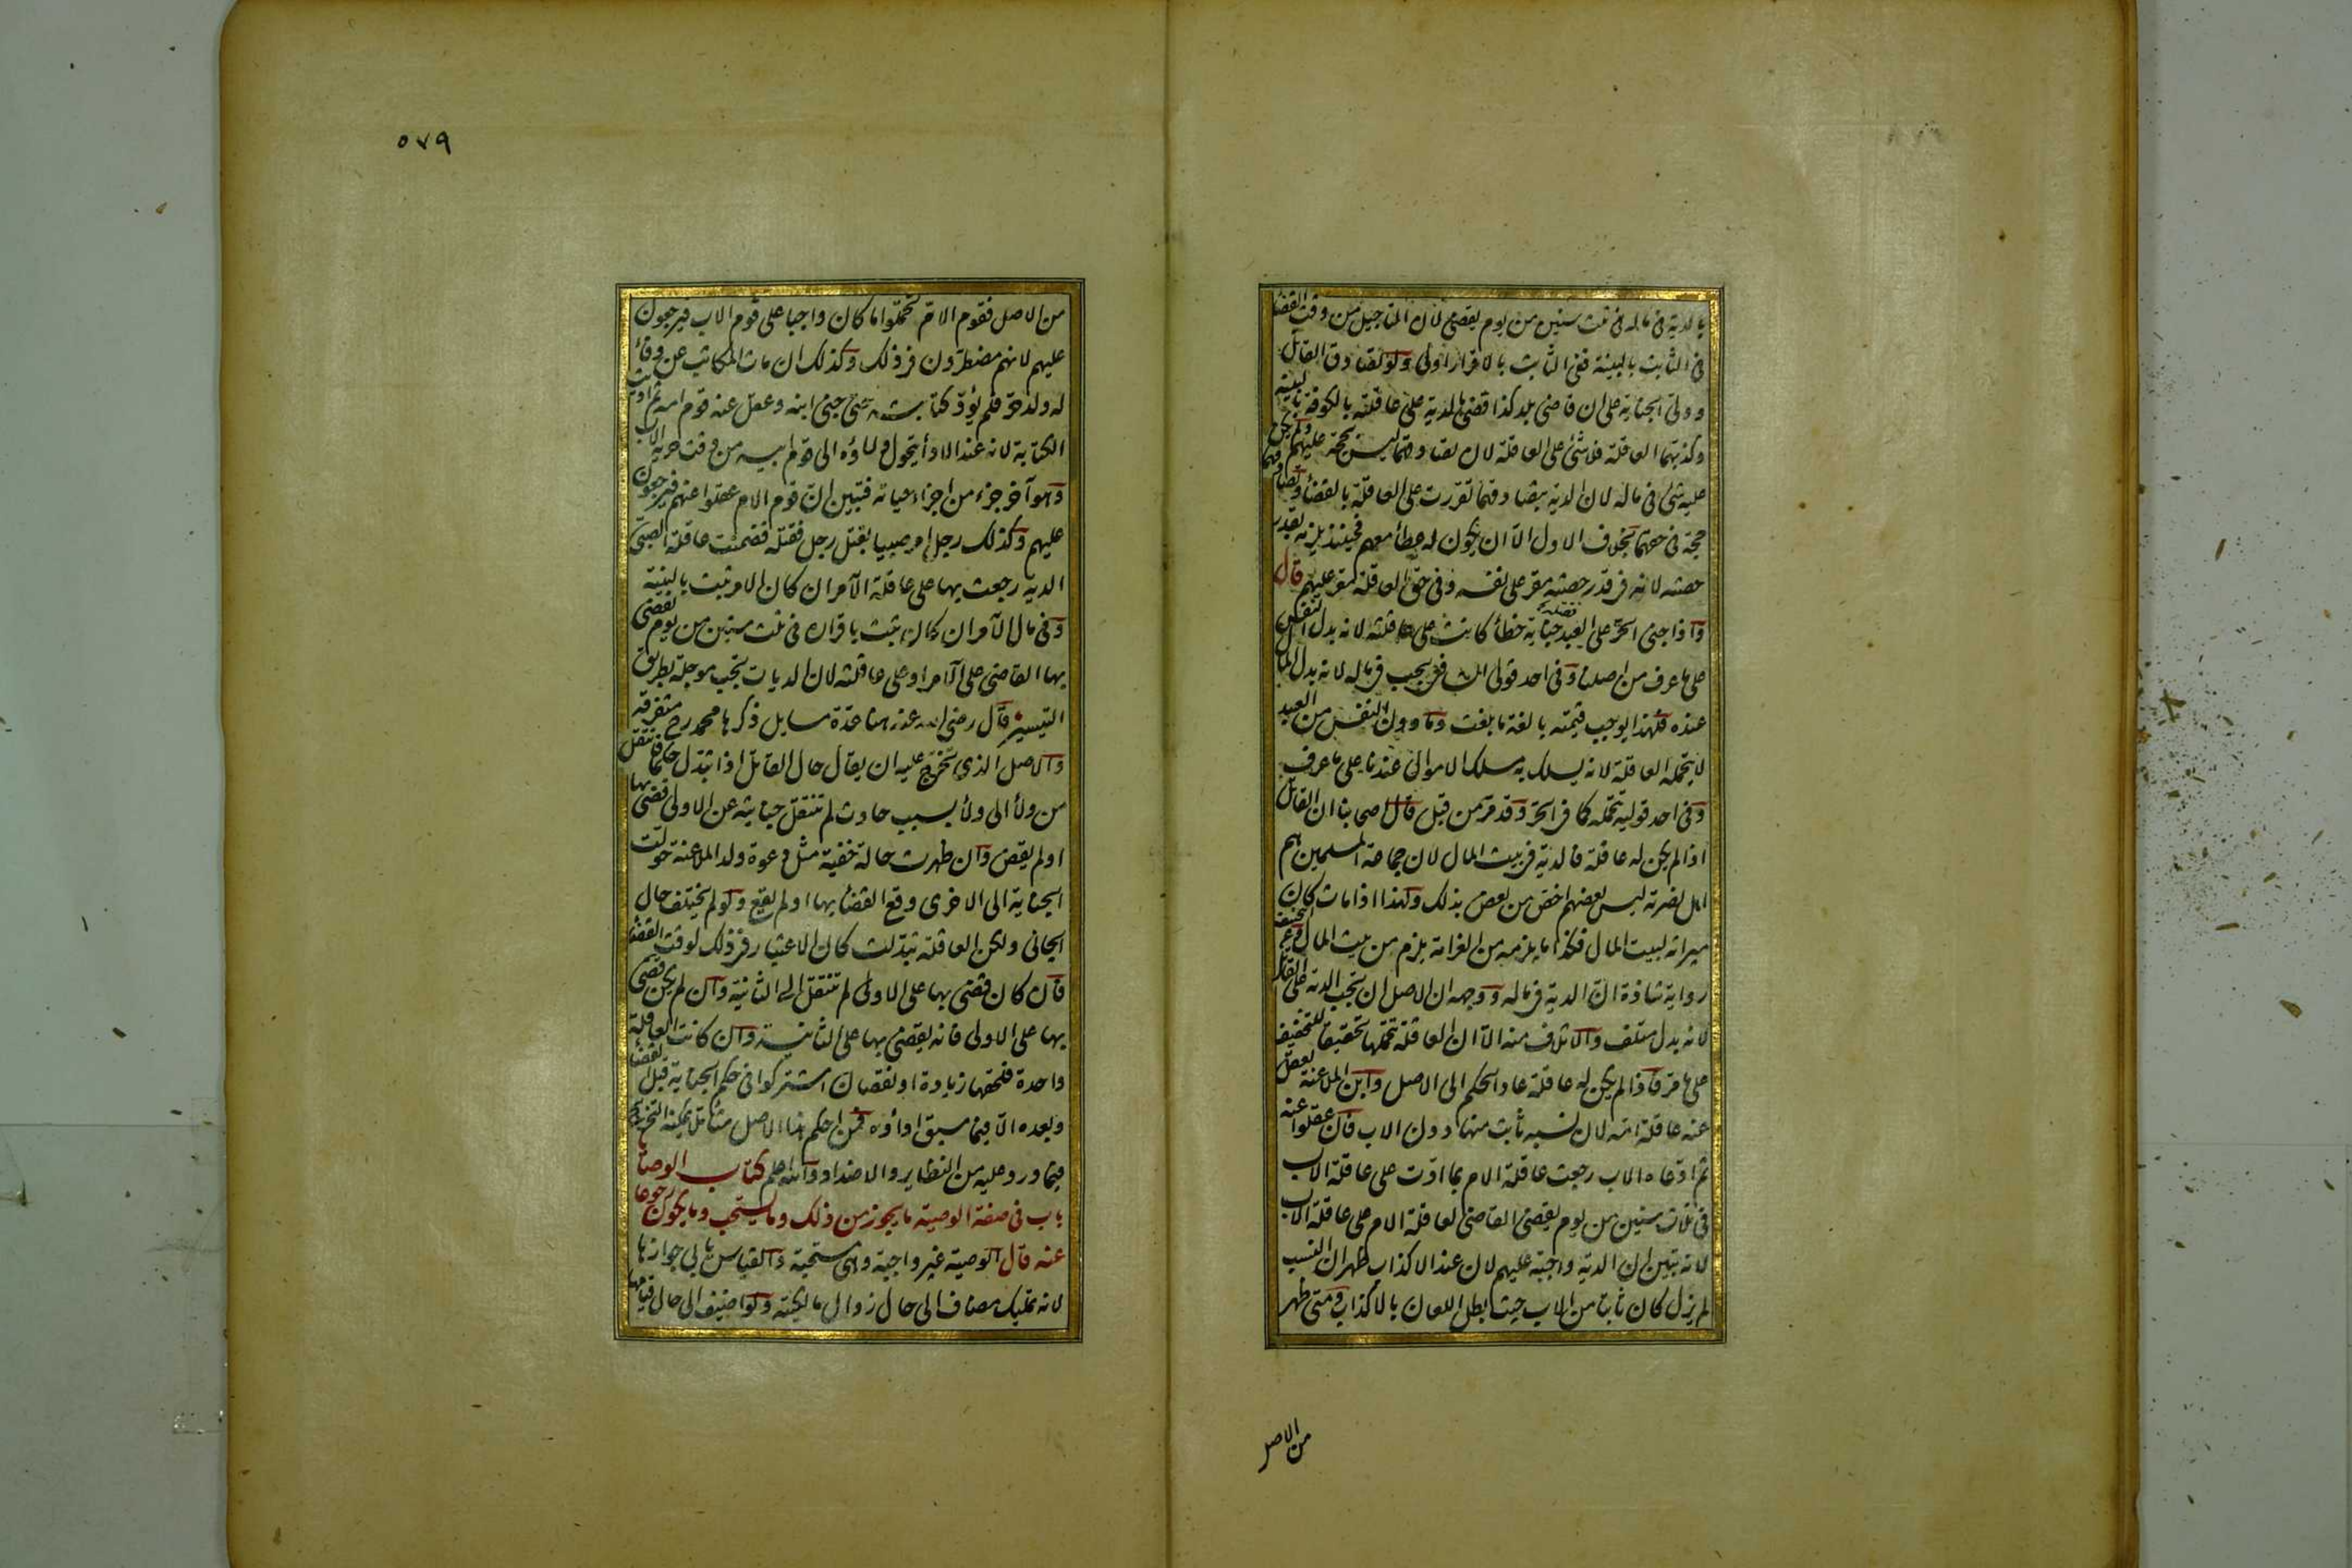 بالدية فى ماله فى ثلث سنين من يوم يقضى لان التاجيل من وقت القضا
فى الثابت بالبينة ففى الثابت بالاقرار اولى ولو تصادق القاتل
وولى الجناية على ان قاضى بلد كذا قضى بالدية على عاقلته بالكوفة بالبينة
وكذبتهما العاقلة فلا شئ على العاقلة لان تصادقهما ليس بحجة عليهم ولم يكن
عليه شئ فى ماله لان الدية بتصادقهما تقررت على العاقلة بالقضأ وتصادقهما
حجة فى حقهما بخلاف الاول الا ان يكون له عطأ معهم فحينئذ يلزمه بقدر
حصته لانه فى قدر حصته مقر على نفسه وفى حق العاقلة مقر عليهم قال
واذا جنى الحر على العبد جناية فقتله خطأ كانت على عاقلته لانه بدل النفس
على ما عرف من اصلنا وفى احد قولى الشافعى يجب فى ماله لانه بدل المال
عنده فلهذا يوجب قيمته بالغة ما بلغت وما دون النفس من العبد
لا يتحمله العاقلة لانه يسلك به مسلك الاموال عندنا على ما عرف
وفى احد قوليه يتحمله كما فى الحر وقد مر من قبل قال اصحابنا ان القاتل
اذا لم يكن له عاقلة فالدية فى بيت المال لان جماعة المسلمين هم
اهل نصرته ليس بعضهم اخص من بعض بذلك ولهذا اذا مات كان
ميراثه لبيت المال فكذا ما يلزمه من الغرامة يلزم من بيت المال وعن ابى حنيفة
رواية شاذة ان الدية فى ماله ووجهه ان الاصل ان تجب الدية على القاتل
لانه بدل متلف والاتلاف منه الا ان العاقلة تتحملها تحقيقا للتخفيف
على ما مر فاذا لم يكن له عاقلة عاد الحكم الى الاصل وابن الملاعنة تعقل
عنه عاقلة امه لان نسبه ثابت منها دون الاب فان عقلوا عنه
ثم ادعاه الاب رجعت عاقلة الام بما ادت على عاقلة الاب
فى ثلاث سنين من يوم يقضى القاضى لعاقلة الام على عاقلة الاب
لانه تبين ان الدية واجبة عليهم لان عند الاكذاب ظهر ان النسب
لم يزل كان ثابتا من الاب حيث بطل اللعان بالاكذاب ومتى ظهر
من الاصل
٥٧٩
من الاصل فقوم الام تحملوا ما كان واجبا على قوم الاب فيرجعون
عليهم لانهم مضطرون فى ذلك وكذلك ان مات المكاتب عن وفأ
له ولد حر فلم يؤد كتابته حتى جنى ابنه وعقل عنه قوم امه ثم اديت
الكتابة لانه عند الادأ يتحول ولاؤه الى قوم ابيه من وقت حرية الاب
وهو آخر جزء من اجزاء حياته فتبين ان قوم الام عقلوا عنهم فيرجعون
عليهم وكذلك رجل امر صبيا بقتل رجل فقتله فضمنت عاقلة الصبى
الدية رجعت بها على عاقلة الآمر ان كان الامر ثبت بالبينة
وفى مال الآمر ان كان ثبت باقراره فى ثلث سنين من يوم يقضى
بها القاضى على الآمر او على عاقلته لان الديات تجب موجلة بطريق
التيسير قال رضى الله عنه هنا عدة مسايل ذكرها محمد رح متفرقة
والاصل الذى تخرج عليه ان يقال حال القاتل اذا تبدل حكما فانتقل
من ولأ الى ولأ بسبب حادث لم تنتقل جنايته عن الاولى قضى بها
او لم يقض وان ظهرت حالة خفية مثل دعوة ولد الملاعنة حولت
الجناية الى الاخرى وقع القضأ بها او لم يقع ولو لم يختلف حال
الجانى ولكن العاقلة تبدلت كان الاعتبار فى ذلك لوقت القضأ
فان كان قضى بها على الاولى لم تنتقل الى الثانية وان لم يكن قضى
بها على الاولى فانه يقضى بها على الثانية وان كانت العاقلة
واحدة فلحقها زيادة او نقصان اشتركوا فى حكم الجناية قبل القضأ
وبعده الا فيما سبق اداؤه فمن احكم هذا الاصل متاملا يمكنه التخريج
فيما ورد عليه من النظاير والاضداد والله اعلم كتاب الوصايا
باب فى صفة الوصية ما يجوز من ذلك وما يستحب وما يكون رجوعا
عنه قال الوصية غير واجبة وهى مستحبة والقياس يابى جوازها
لانه تمليك مضاف الى حال زوال مالكيته ولو اضيف الى حال قيامها